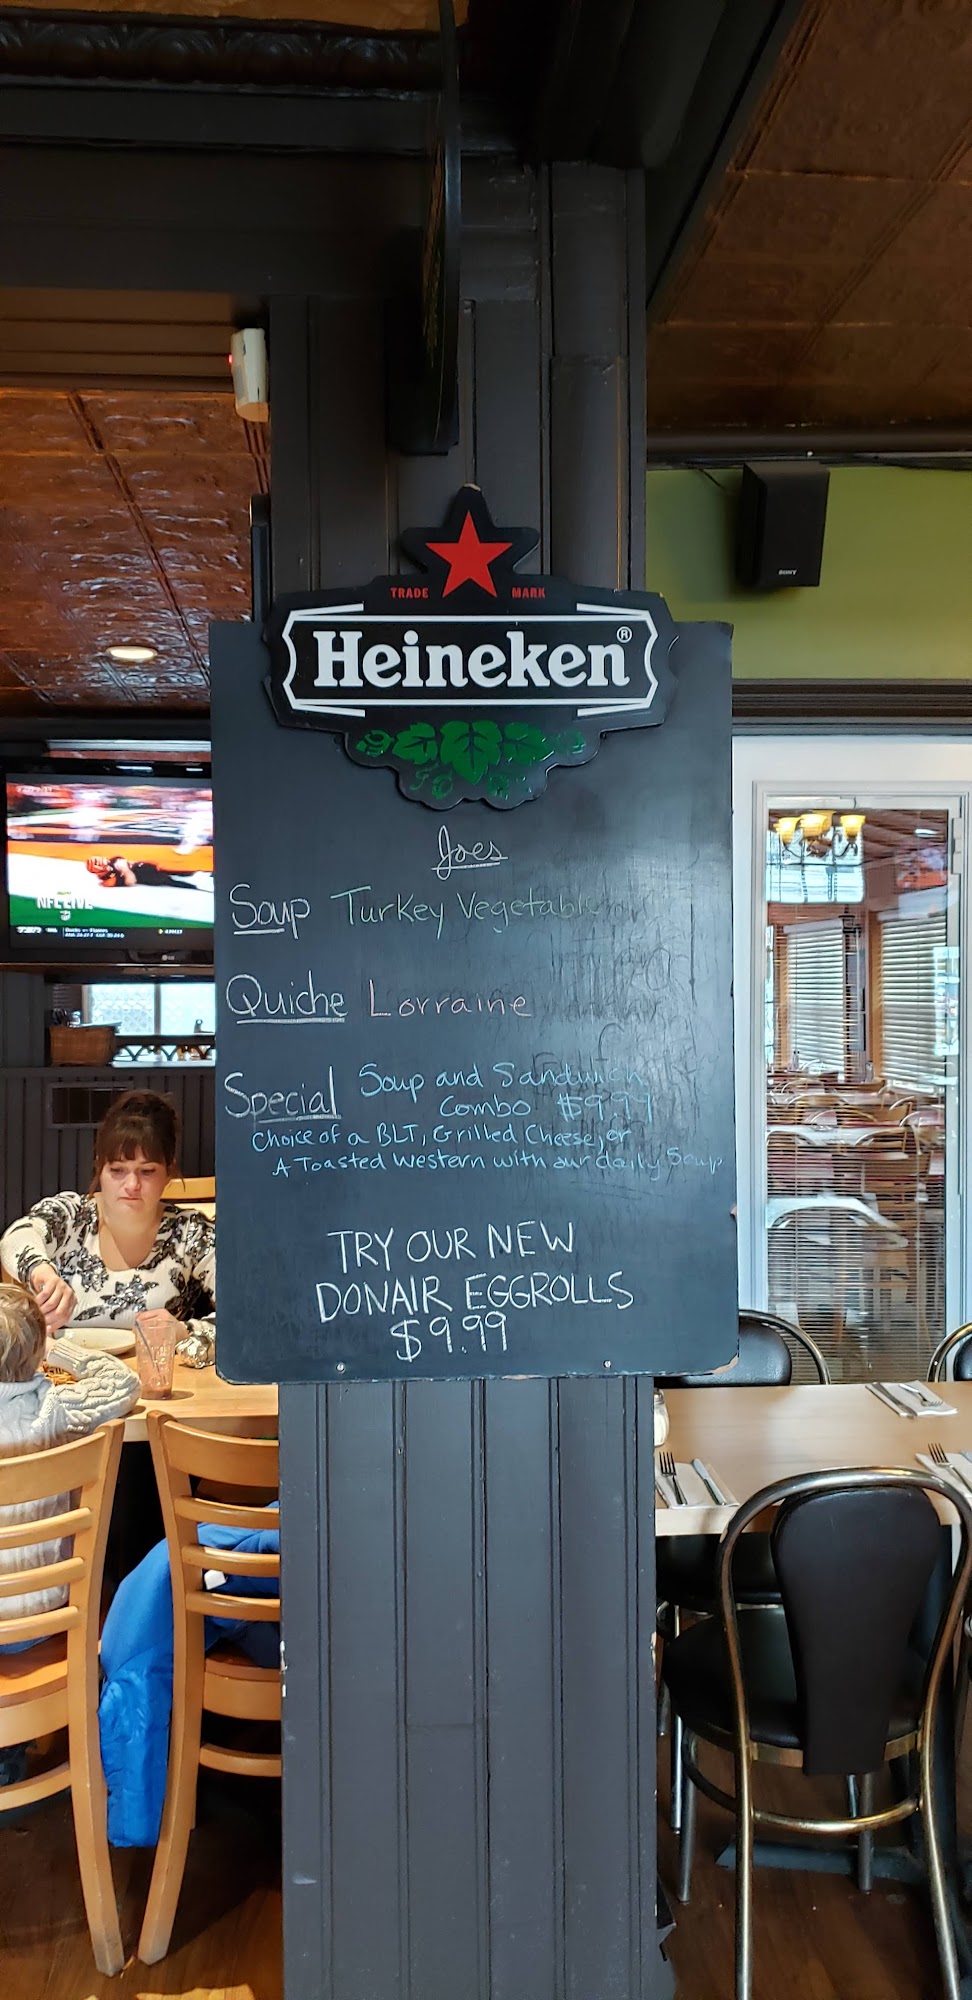 TRADE MARK
Heineken®
Joes
Soup Turkey Vegetable
Quiche Lorraine
Special Soup and Sandwich
Combo $9.99
Choice of a BLT, Grilled Cheese, or
A Toasted Western with our daily Soup
TRY OUR NEW
DONAIR EGGROLLS
$9.99
SONY
NFL LIVE
LG